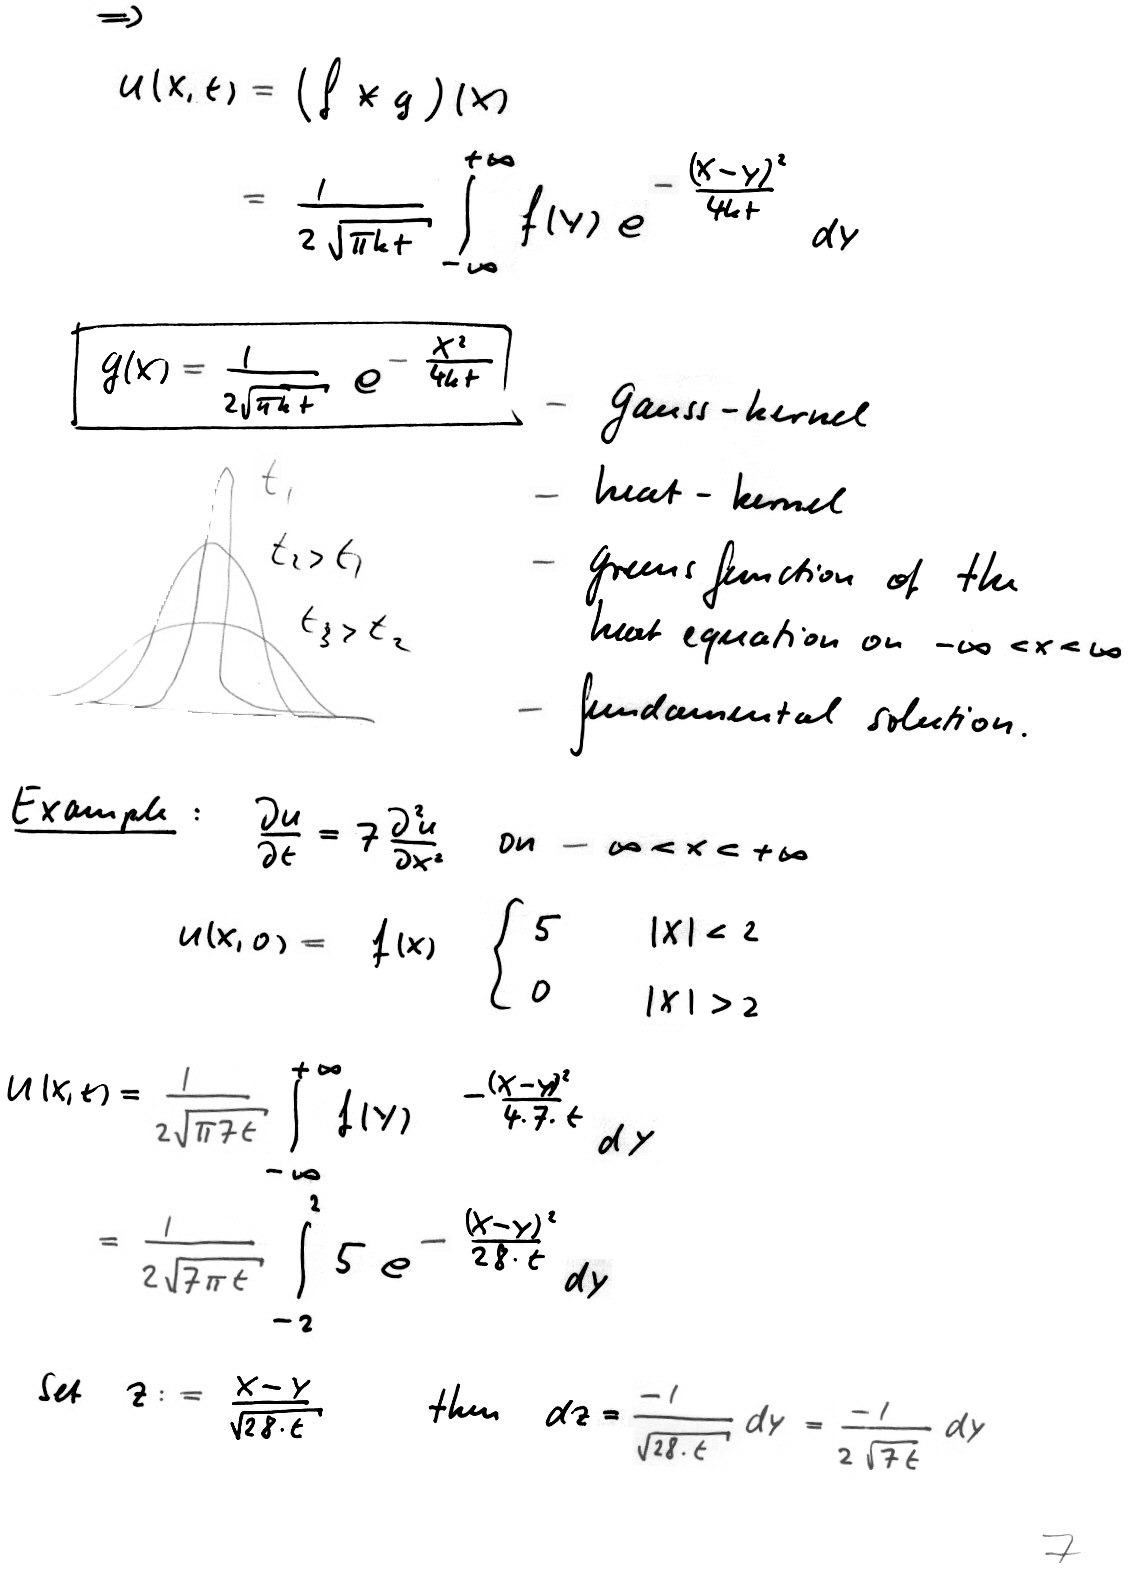 ⇒
u(x,t) = (f * g)(x)
= 1/(2√(πkt)) ∫_{-∞}^{+∞} f(y) e^{-(x-y)²/(4kt)} dy
g(x) = 1/(2√(πkt)) e^{-x²/(4kt)}
- Gauss-kernel
t₁
- heat-kernel
t₂>t₁
- greens function of the
heat equation on -∞<x<∞
t₃>t₂
- fundamental solution.
Example: ∂u/∂t = 7 ∂²u/∂x² on -∞<x<+∞
u(x,0) = f(x) { 5 |x|<2
0 |x|>2
u(x,t) = 1/(2√(π7t)) ∫_{-∞}^{+∞} f(y) -(x-y)²/(4·7·t) dy
= 1/(2√(7πt)) ∫_{-2}^{2} 5 e^{-(x-y)²/(28·t)} dy
Set z := (x-y)/√(28·t) then dz = -1/√(28·t) dy = -1/(2√(7t)) dy
7